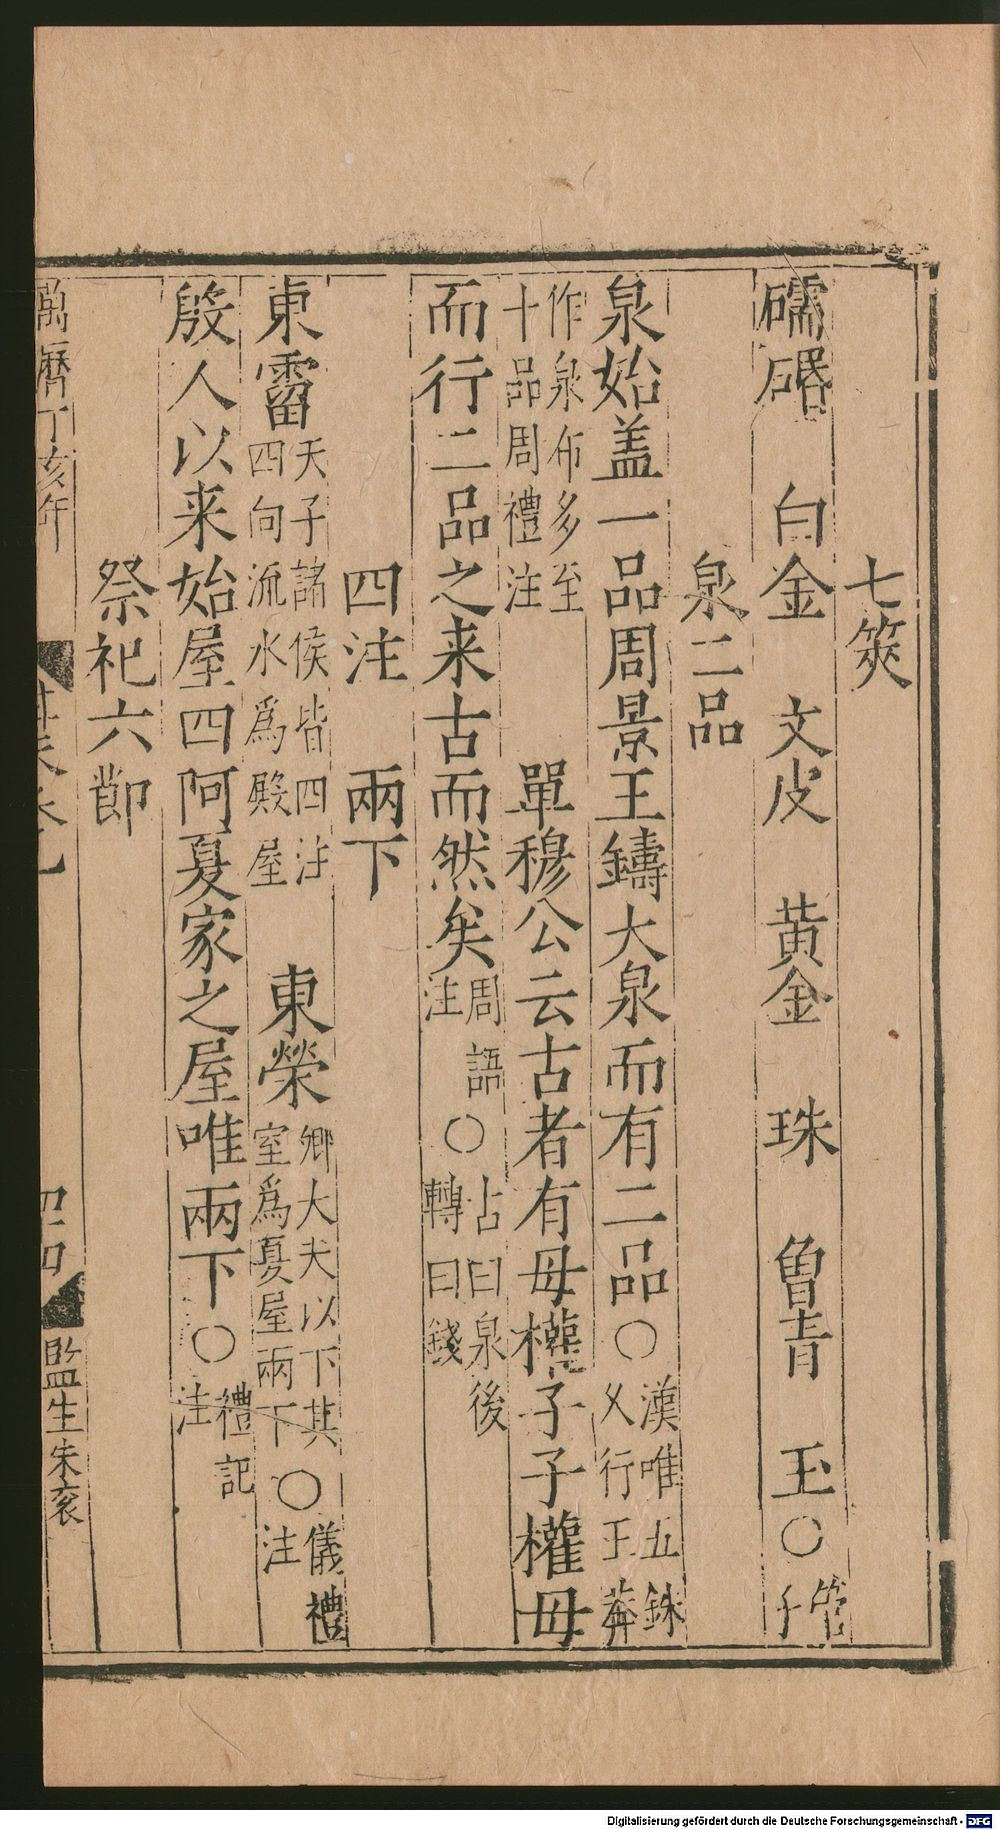 七筴
礝碈　白金　文皮　黄金　珠　曾青　玉○管子
泉二品
泉始蓋一品周景王鑄大泉而有二品○漢唯五銖乂行王莽
作泉布多至十品周禮注　單穆公云古者有母權子子權母
而行二品之来古而然矣周語注○占曰泉後轉曰錢
四注　兩下
東霤天子諸侯皆四注四向流水爲殿屋　東榮卿大夫以下其室爲夏屋兩下○儀禮注
殷人以来始屋四阿夏家之屋唯兩下○禮記注
祭祀六節
萬曆丁亥年
監生朱衮
Digitalisierung gefördert durch die Deutsche Forschungsgemeinschaft - DFG